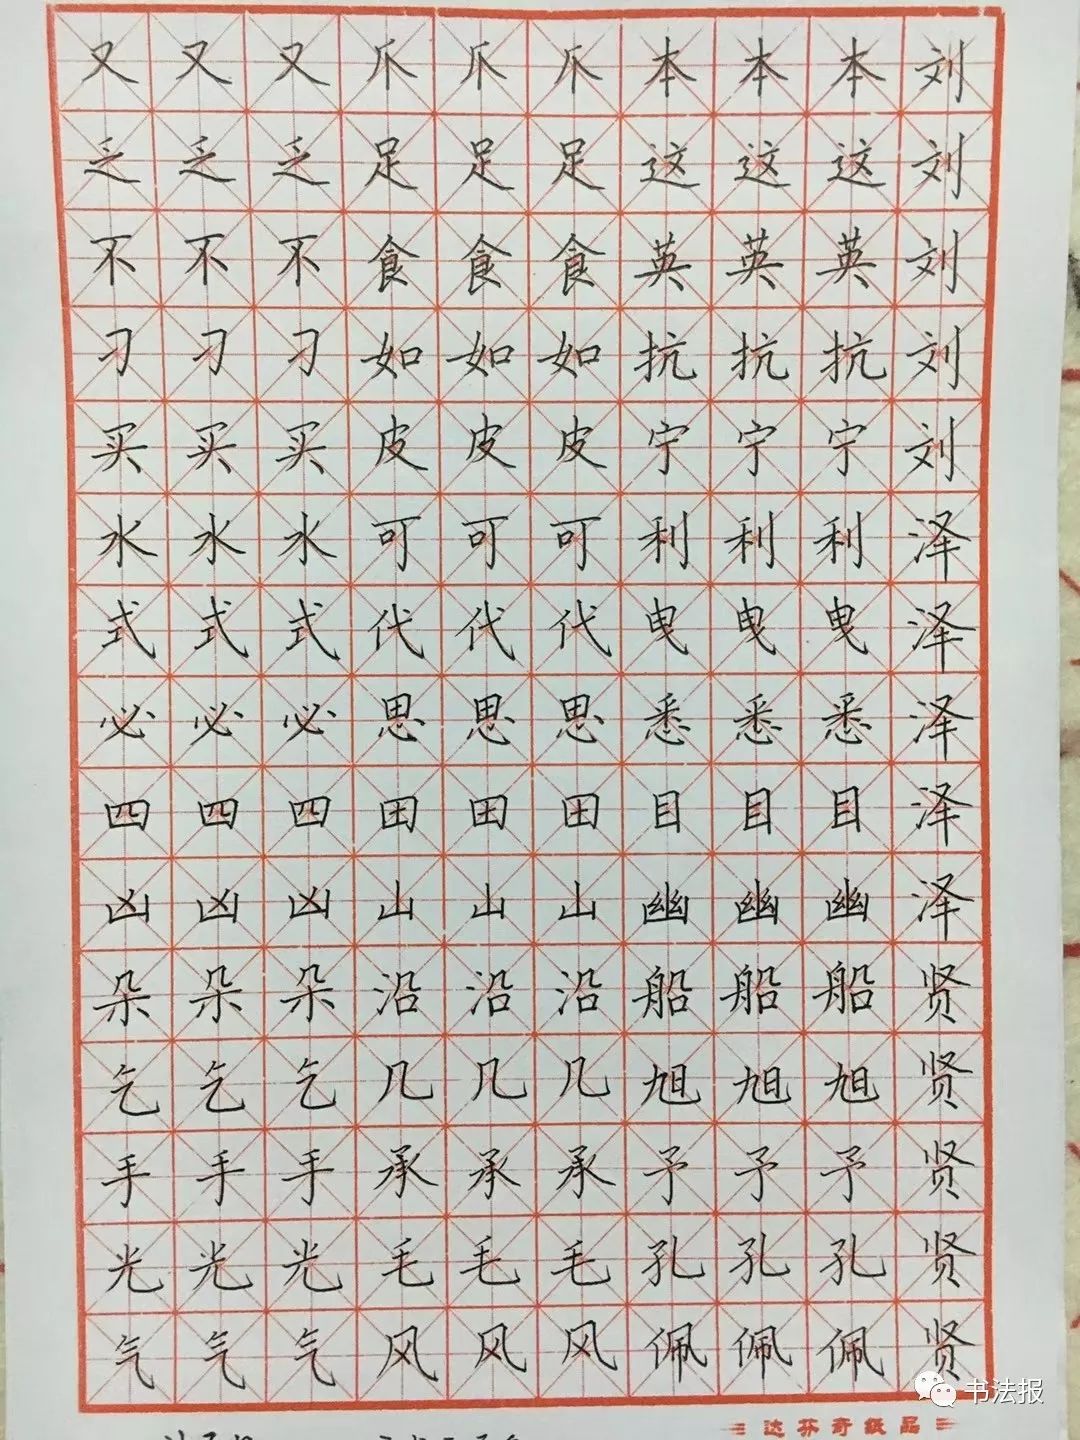 又又又爪爪爪本本本刘
乏乏乏足足足这这这刘
不不不食食食英英英刘
刁刁刁如如如抗抗抗刘
买买买皮皮皮宁宁宁刘
水水水可可可利利利泽
式式式代代代曳曳曳泽
必必必思思思悉悉悉泽
四四四田田田目目目泽
凶凶凶山山山幽幽幽泽
朵朵朵沿沿沿船船船贤
乞乞乞几几几旭旭旭贤
手手手承承承予予予贤
光光光毛毛毛孔孔孔贤
气气气风风风佩佩佩贤
书法报
达芬奇纸品